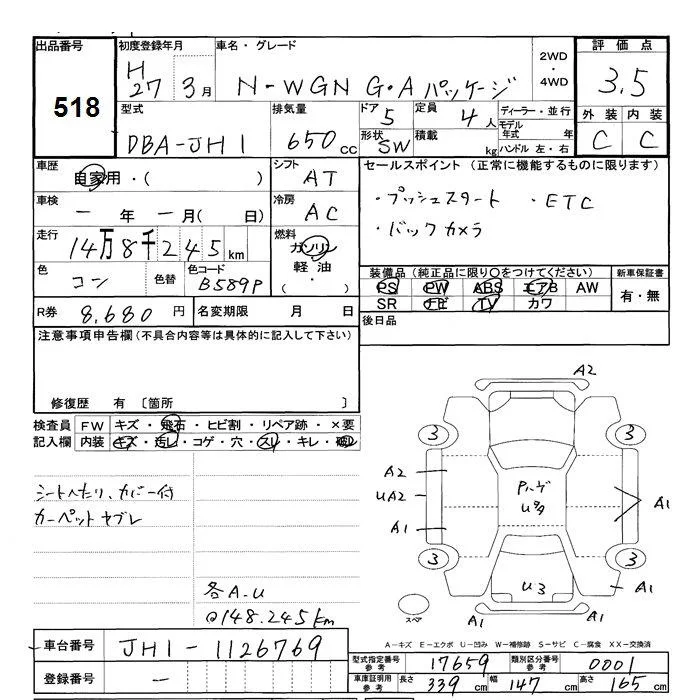 出品番号 初度登録年月 車名・グレード 2WD・4WD 評価点
518 H27 3月 N-WGN G・Aパッケージ 3.5
型式 排気量 ドア 5 定員 4人 ディーラー・並行 外装 内装
DBA-JH1 650cc 形状 SW 積載 kg モデル年式 年 ハンドル 左・右 C C
車歴 自家用・( ) シフト AT セールスポイント(正常に機能するものに限ります)
車検 一年 一月( 日) 冷房 AC ・プッシュスタート ・ETC
走行 14万8千245km 燃料 ガソリン 軽油 ( ・ ) ・バックカメラ
色 コン 色替 色コード B589P 装備品(純正品に限り○をつけてください) 新車保証書
PS PW ABS エアB AW 有・無
SR ナビ TV カワ
R券 8,680円 名変期限 月 日 後日品
注意事項申告欄(不具合内容等は具体的に記入して下さい)
修復歴 有 〔箇所 〕
検査員 FW キズ・飛石・ヒビ割・リペア跡・×要
記入欄 内装 キズ・汚レ・コゲ・穴・スレ・キレ・
シートヘタリ、カバー付
カーペットヤブレ
各A.U
@148.245km
A2
3 3
A2
UA2
A1
A1
3 3
U3
A1
A1
スペア
A-キズ E-エクボ U-凹み W-補修跡 S-サビ C-腐食 XX-交換済
車台番号 JH1-1126769
登録番号 一
型式指定番号 参考 17659 類別区分番号 参考 0001
車庫証明用 参考 長さ 339cm 幅 147cm 高さ 165cm